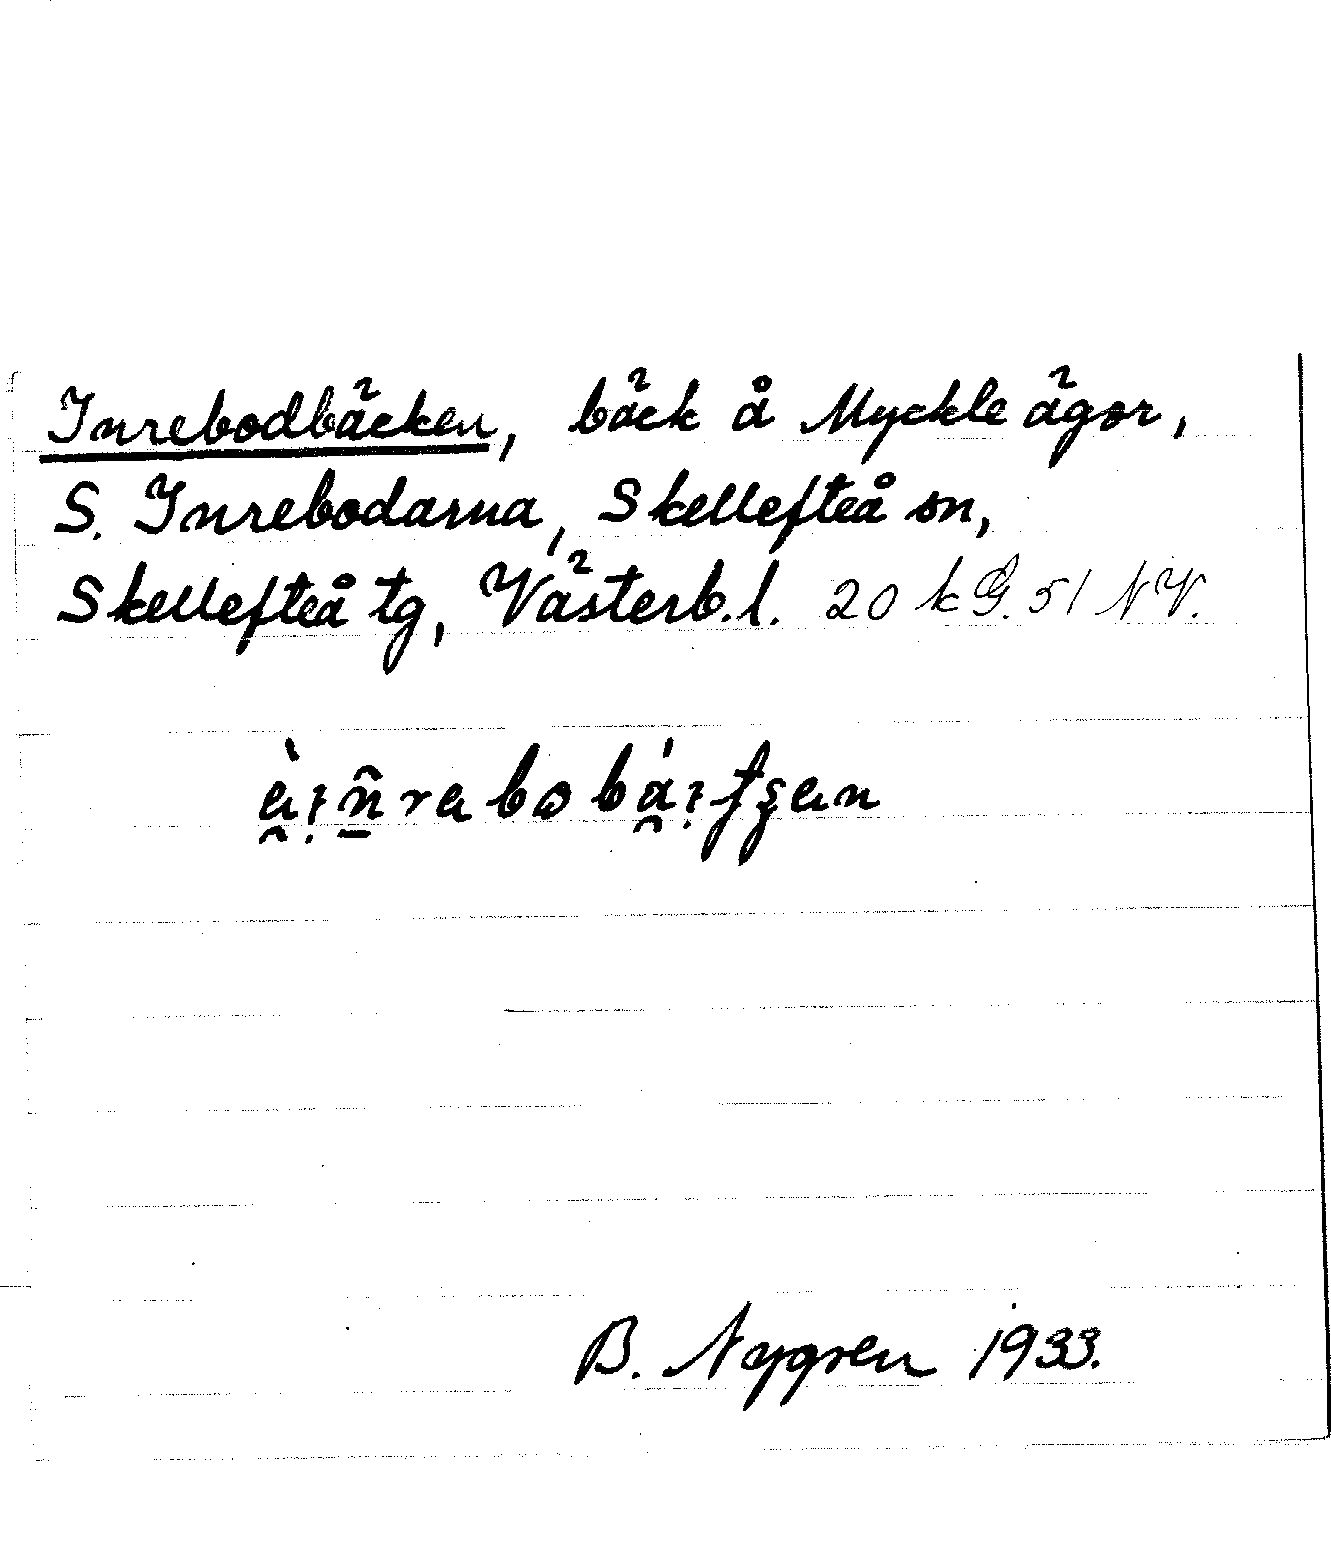 Inrebodbäcken, bäck å Myckle ägor,
S. Inrebodarna, Skellefteå sn,
Skellefteå tg, Västerb. l. 20 k G. 51 NV.
B. Nygren 1933.